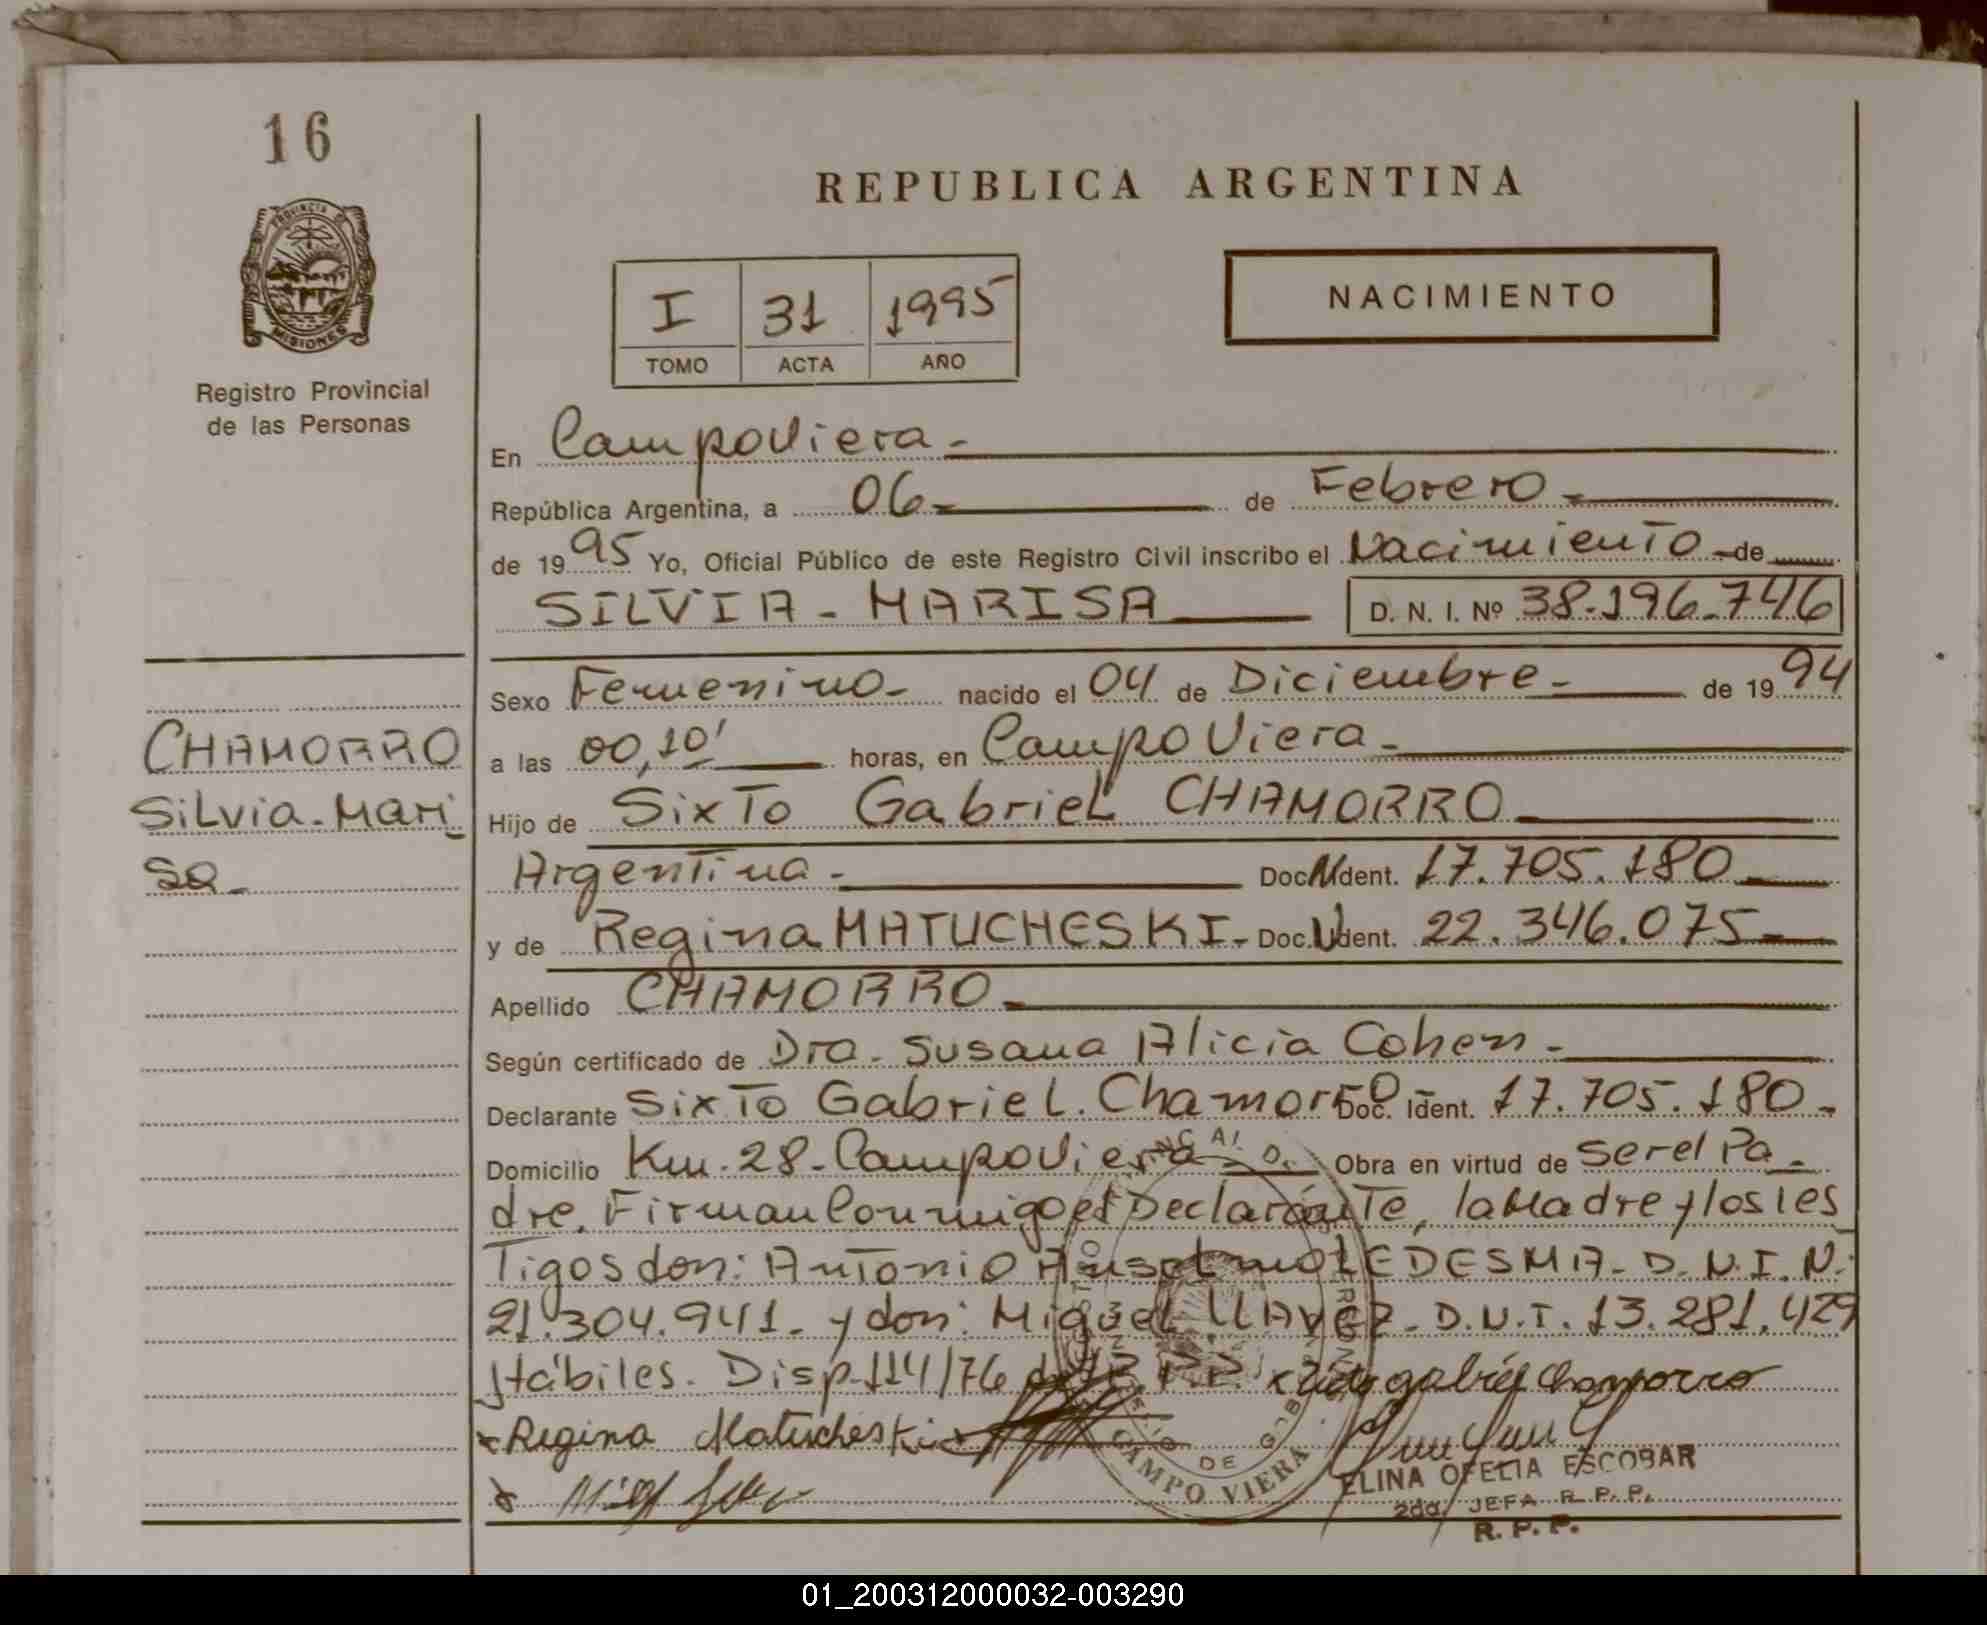 16
PROVINCIA DE
MISIONES
Registro Provincial
de las Personas
REPUBLICA ARGENTINA
I 31 1995
TOMO ACTA AÑO
NACIMIENTO
En CampoViera -
República Argentina, a 06 - de Febrero -
de 1995 Yo, Oficial Público de este Registro Civil inscribo el Nacimiento - de
SILVIA - MARISA D. N. I. Nº 38.196.746
Sexo Femenino - nacido el 04 de Diciembre - de 1994
a las 00,10' horas, en Campo Viera -
CHAMORRO
Hijo de Sixto Gabriel CHAMORRO
Silvia - Mari
Argentina - Doc. Ident. 17.705.180
sa -
y de Regina MATUCHESKI - Doc. Ident. 22.346.075 -
Apellido CHAMORRO -
Según certificado de Dra. Susana Alicia Cohen -
Declarante Sixto Gabriel. Chamorro Doc. Ident. 17.705.180 -
Domicilio Km. 28 - CampoViera - Obra en virtud de ser el Pa -
dre. Firman Conmigo el Declarante, la Madre y los tes
Tigos don: Antonio Anselmo LEDESMA - D.N.I. N:
21.304.941 - y don: Miguel LLAVEZ - D.N.I. 13.281.429
Hábiles. Disp. 114/76 R.P.P. x gabriel chamorro
x Regina Matucheski x
x
CAMPO VIERA
DE
ELINA OFELIA ESCOBAR
2da. JEFA R. P. P.
R. P. P.
01_200312000032-003290